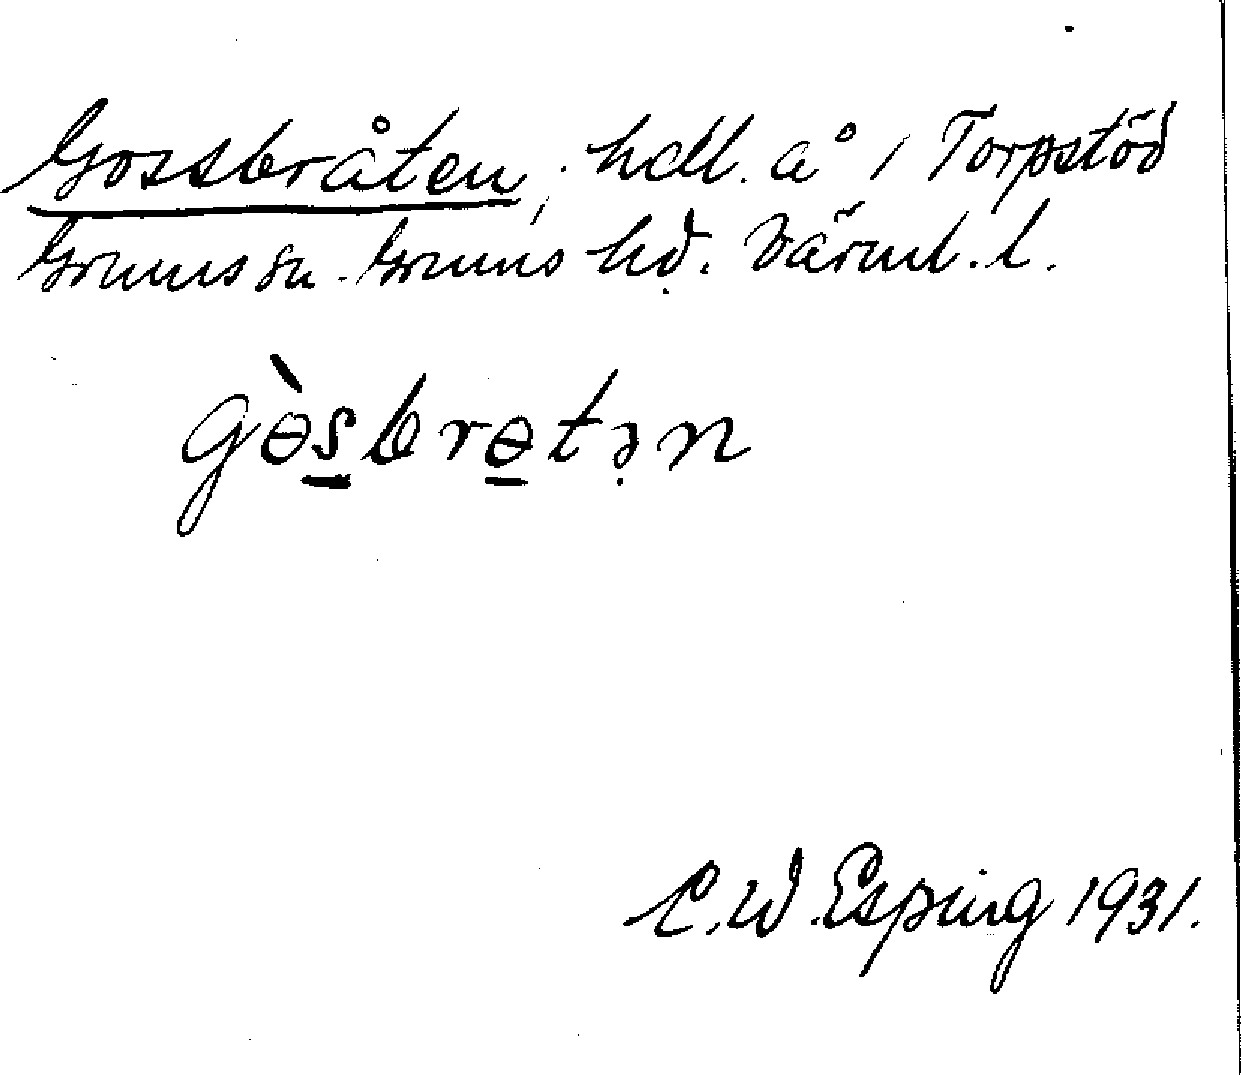 Gossbråten, hdl. å i Torpstöd
Grums sn. Grums hd. Värml. l.
gɵ̀s̲brɵ̲tən
C. W. Esping 1931.